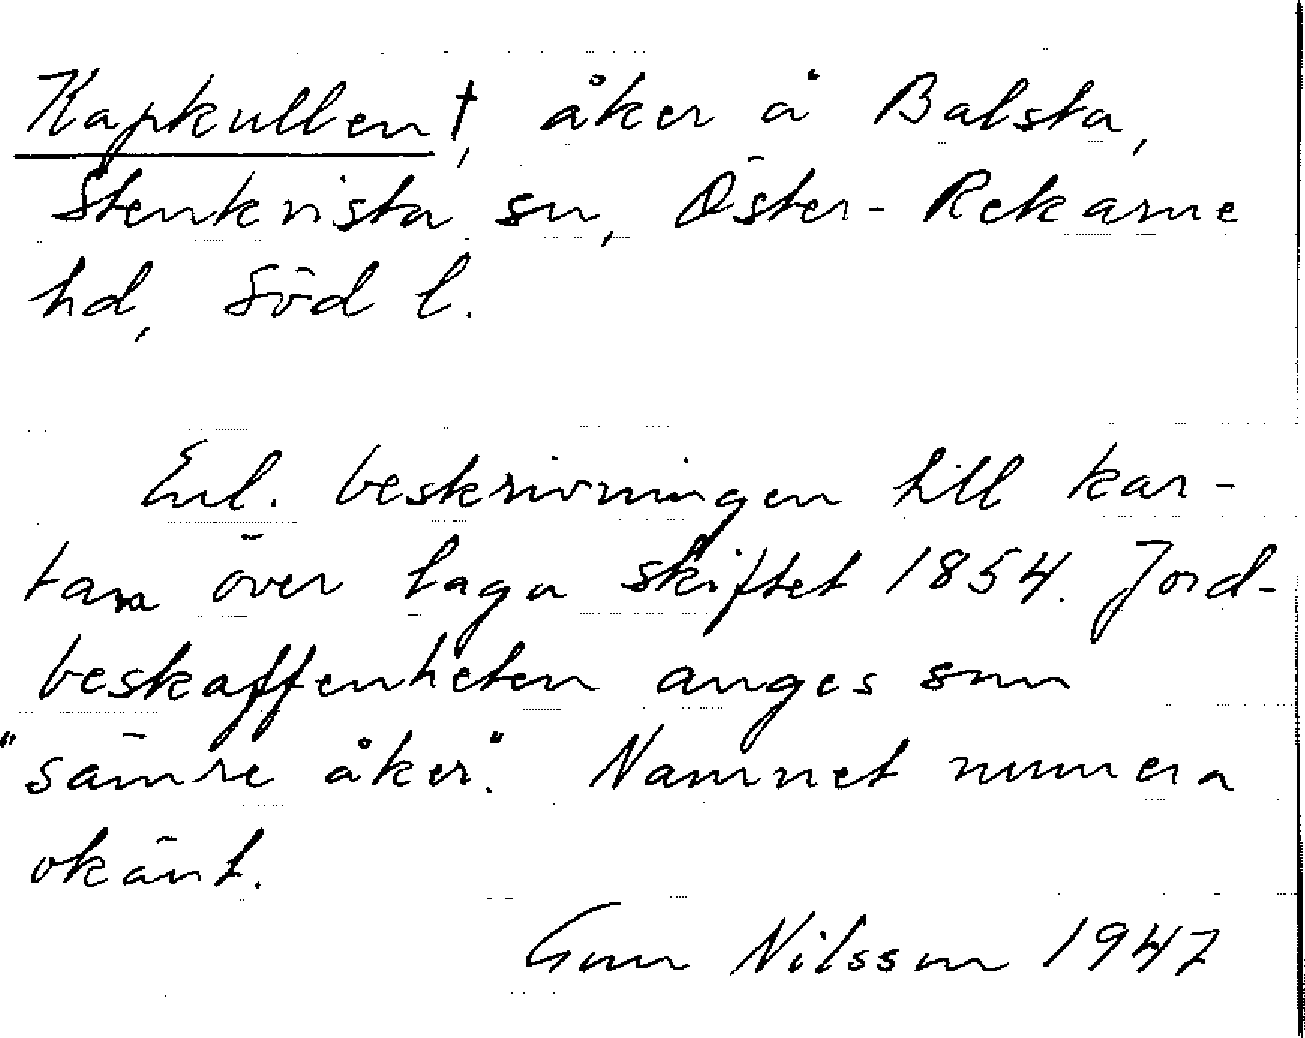 Kapkullen†, åker å Balsta,
Stenkvista sn, Öster-Rekarne
hd, Söd l.
Enl. beskrivningen till kar-
tan över laga skiftet 1854. Jord-
beskaffenheten anges som
"sämre åker". Namnet numera
okänt.
Gun Nilsson 1947